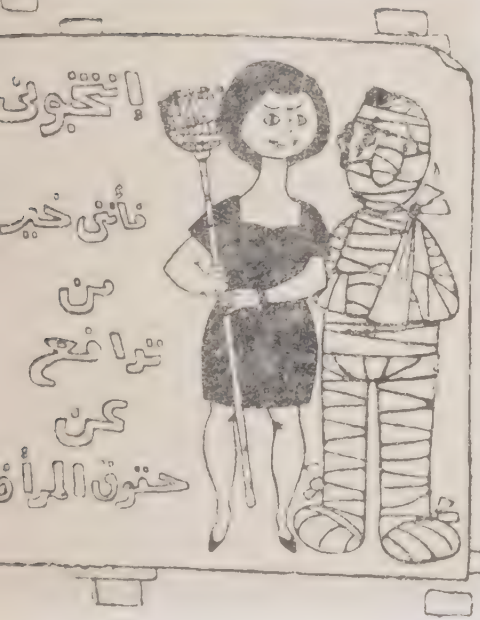 إنتخبونى
فأننى خير
من
ترافع
عن
حقوق المرأة